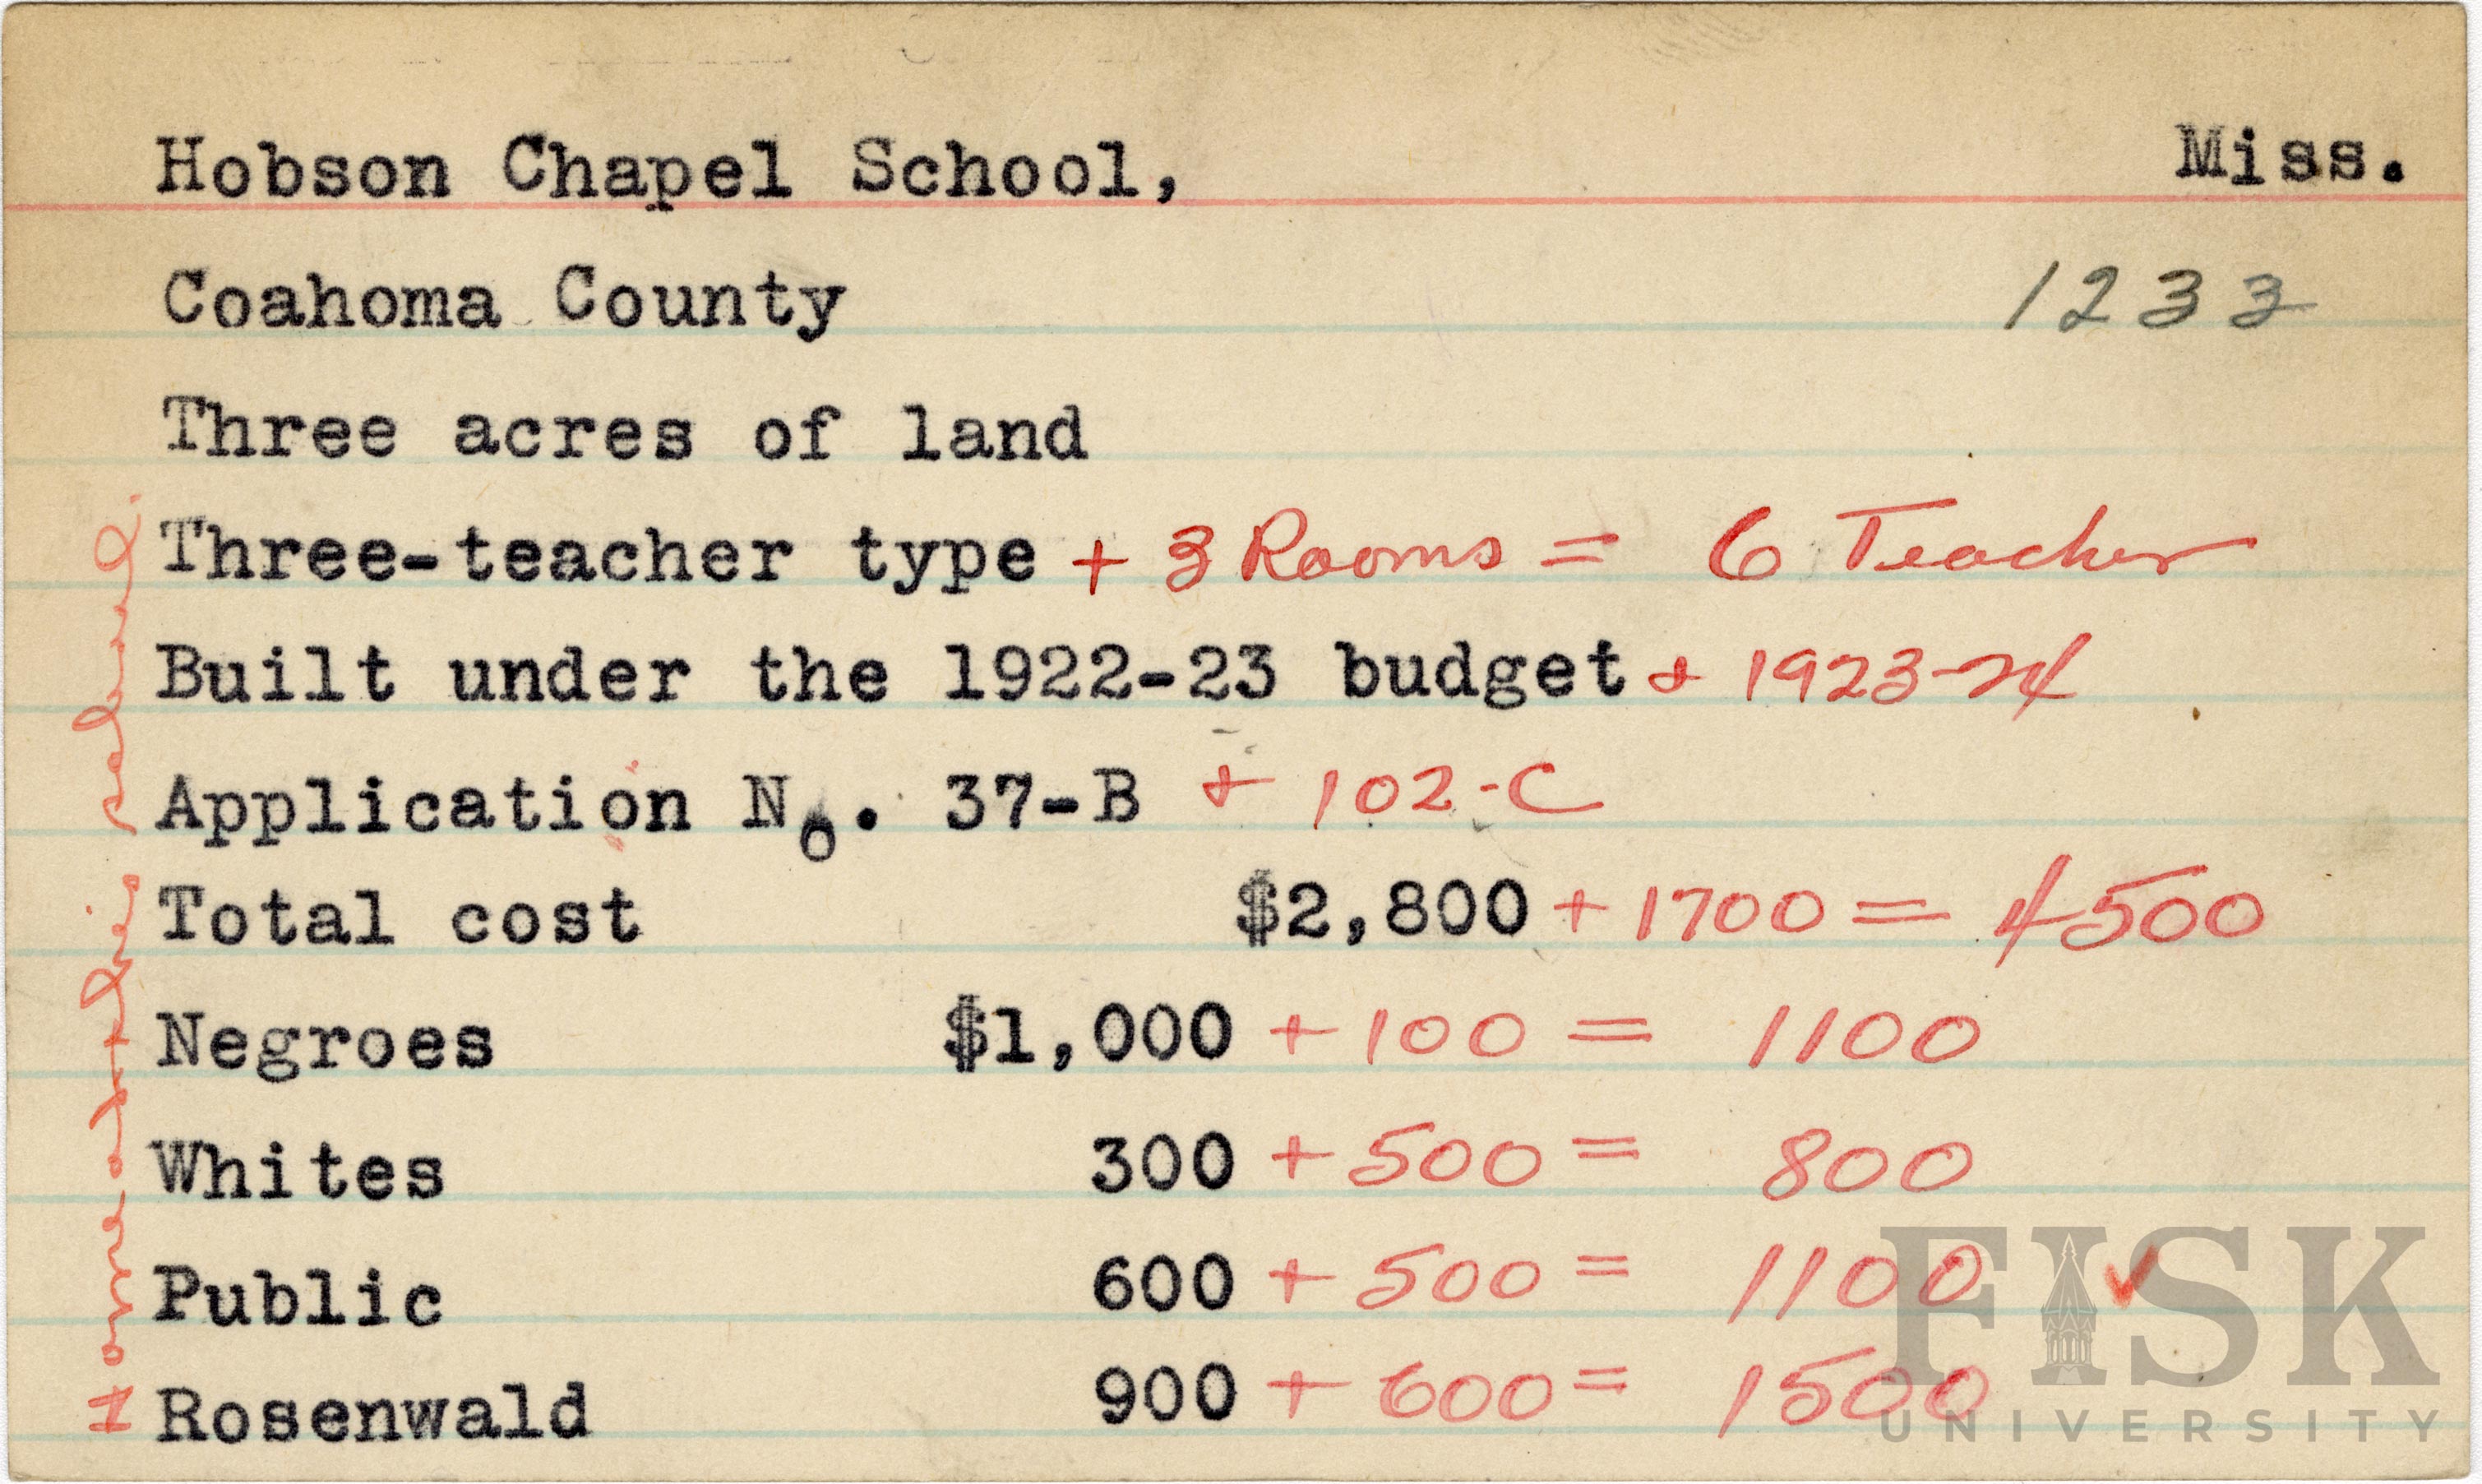 Hobson Chapel School, Miss.
Coahoma County 1233
Three acres of land
Three-teacher type + 3 Rooms = 6 Teacher
Built under the 1922-23 budget + 1923-24
Application No. 37-B + 102-C
Total cost $2,800 + 1700 = 4500
Negroes $1,000 + 100 = 1100
Whites 300 + 500 = 800
Public 600 + 500 = 1100 ✓
Rosenwald 900 + 600 = 1500
Home at this school.
FISK
UNIVERSITY